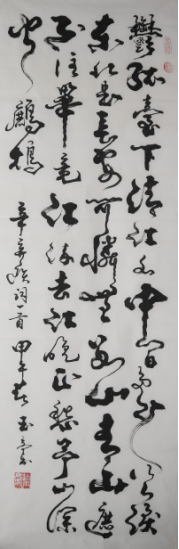 鬱孤臺下清江水中間多少行人淚
東北是長安可憐無數山青山遮
不住畢竟江流去江晚正愁予山深
聞鷓鴣
辛棄疾詞一首甲午